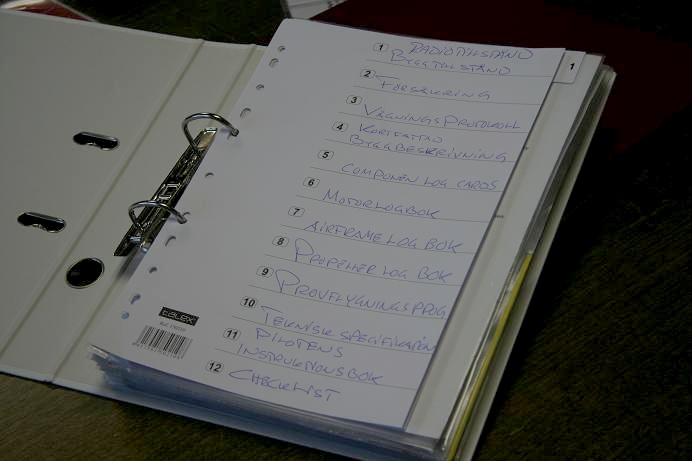 1 RADIOTILLSTÅND
BYGGTILLSTÅND
1
2 FÖRSÄKRING
3 VÄGNINGSPROTOKOLL
4 KORTFATTAD
BYGGBESKRIVNING
5 COMPONENT LOG CARDS
6 MOTORLOGBOK
7 AIRFRAME LOG BOK
8 PROPELLER LOG BOK
9 PROVFLYGNINGSPROG
10 TEKNISK SPECIFIKATION
11 PILOTENS
INSTRUKTIONSBOK
12 CHECKLIST
talex